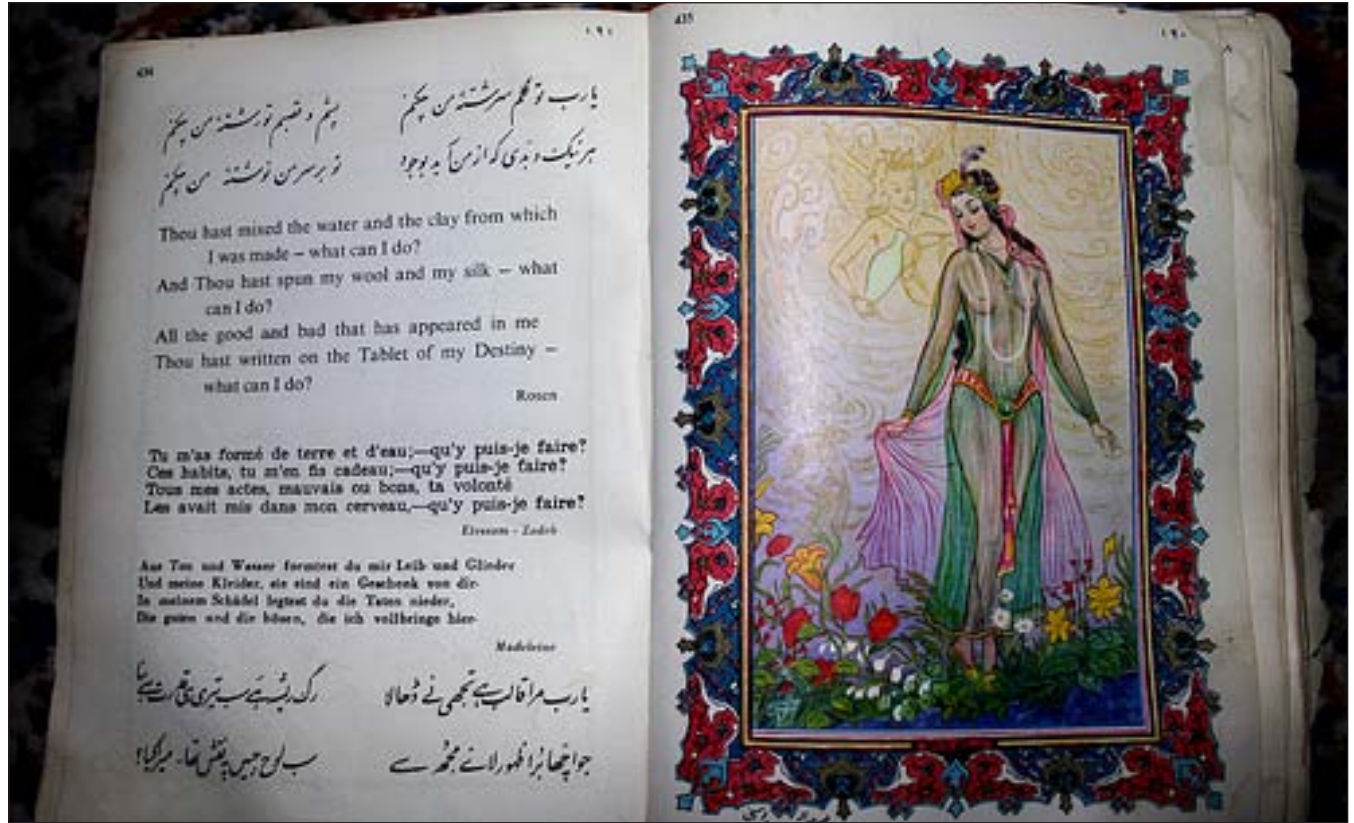 434
١٩١
یارب تو گلم سرشتۀ من چکنم پشم و قصبم تو رشتۀ من چکنم
هر نیک و بدی که از من آید بوجود تو بر سر من نوشتۀ من چکنم
Thou hast mixed the water and the clay from which
I was made – what can I do?
And Thou hast spun my wool and my silk – what
can I do?
All the good and bad that has appeared in me
Thou hast written on the Tablet of my Destiny –
what can I do?
Rosen
Tu m'as formé de terre et d'eau;—qu'y puis-je faire?
Ces habits, tu m'en fis cadeau;—qu'y puis-je faire?
Tous mes actes, mauvais ou bons, ta volonté
Les avait mis dans mon cerveau,—qu'y puis-je faire?
Etessam - Zadeh
Aus Ton und Wasser formtest du mir Leib und Glieder
Und meine Kleider, sie sind ein Geschenk von dir-
In meinem Schädel legtest du die Taten nieder,
Die guten und die bösen, die ich vollbringe hier-
Madeleine
یارب مرا قالب ہے تجھی نے ڈھالا رگ ریشہ ہے سب تیری ہی قدرت سے بنا
جو اچھا بُرا ظہور لائے مجھ سے سب لوح جبیں پہ نقش تھا۔ میرا کیا!
435
١٩٠